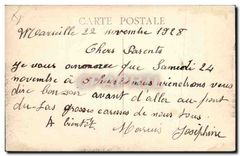 CARTE POSTALE
Marseille 22 novembre 1928
Chers Parents
je vous annonce que Samedi 24
novembre à 5 heures nous viendrons vous
dire bonsoir avant d'aller au pont
du Las grosses caresses de nous tous.
A bientôt Marius Joséphine